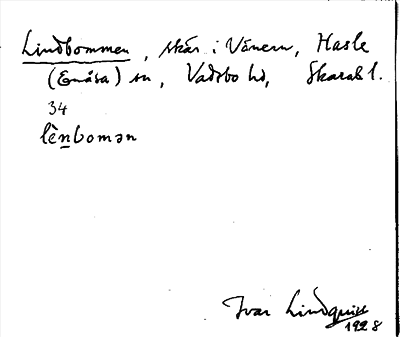 Lindbommen, skär i Vänern, Hasle
(Enåsa) sn, Vadsbo hd, Skarab l.
34
lènboman
Ivar Lindquist
1928